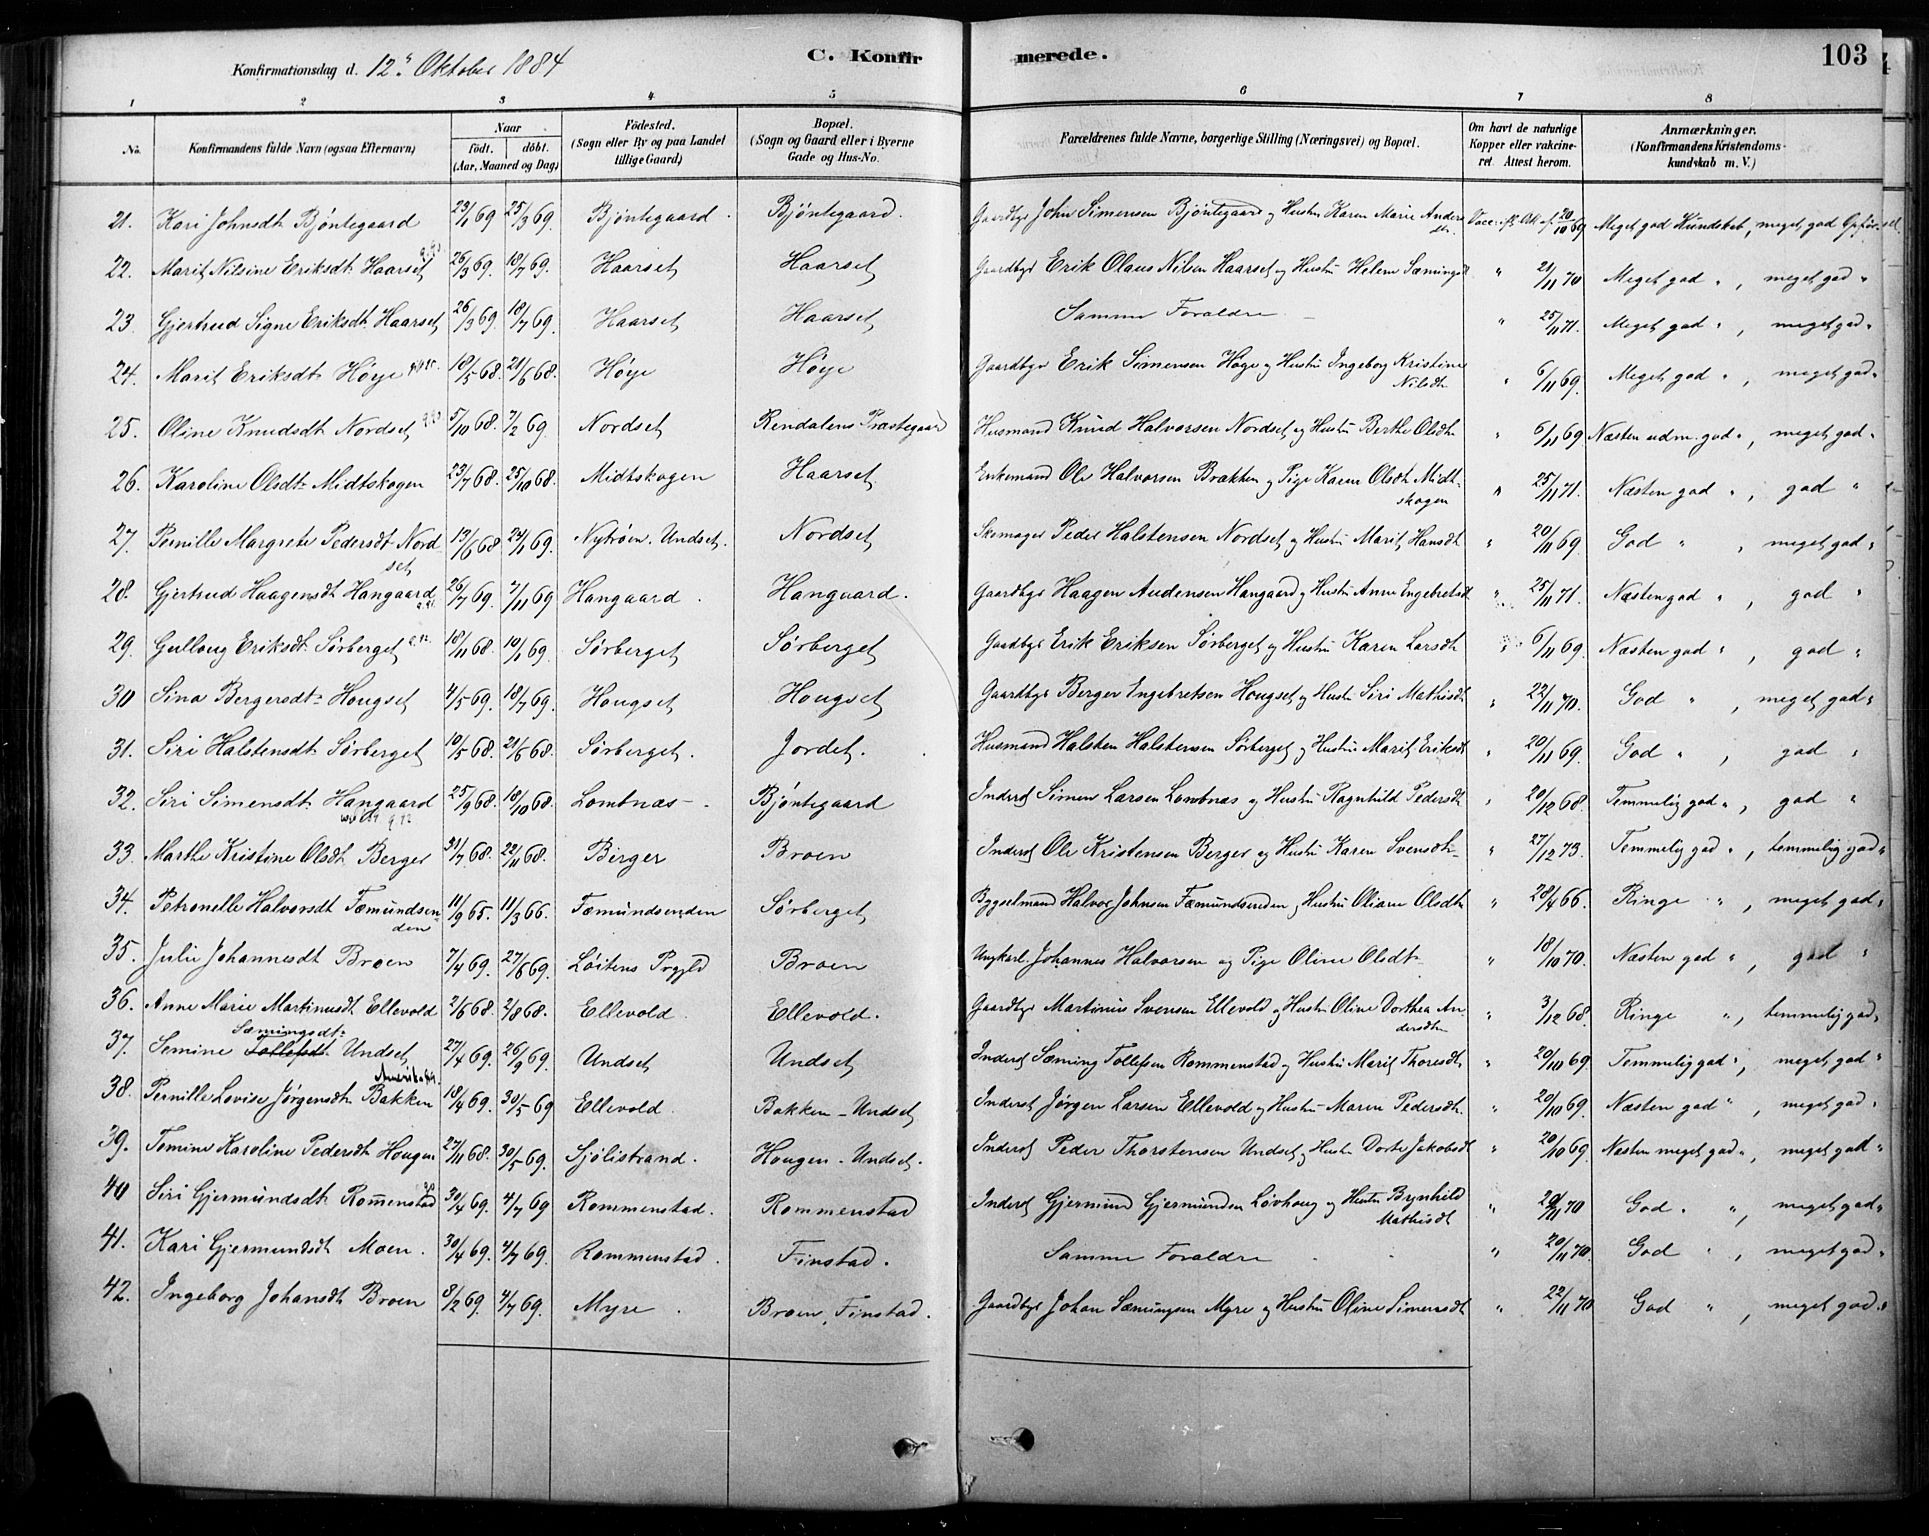 Konfirmationsdag d. 12' Oktober 1884 C. Konfirmerede. 103
1 2 3 4 5 6 7 8
No. Konfirmandens fulde Navn (ogsaa Efternavn) Naar født. døbt. (Aar, Maaned og Dag) Fødested. (Sogn eller By og paa Landet tillige Gaard) Bopæl. (Sogn og Gaard eller i Byerne Gade og Hus-No. Forældrenes fulde Navne, borgerlige Stilling (Næringsvei) og Bopæl. Om havt de naturlige Kopper eller vakcineret. Attest herom. Anmærkninger. (Konfirmandens Kristendomskundskab m. V.)
21. Kari Johnsdt Bjøntegaard 23/1 69 25/3 69. Bjøntegaard. Bjøntegaard. Gaardbgr John Simensen Bjøntegaard og Hustru Karen Marie Andersdtr. Vacc. 20/10 69 Meget god Kundskab, meget god Opførsel.
22. Marit Nilsine Eriksdt Haarset 26/3 69. 18/7 69. Haarset Haarset Gaardbgr Erik Olaus Nilsen Haarset og Hustru Helene Sæmingsdt " 21/11 70 Meget god ", meget god "
23. Gjertrud Signe Eriksdt Haarset 26/3 69. 18/7 69. Haarset Haarset Samme Forældre " 25/11 71. Meget god ", meget god "
24. Marit Eriksdt Høye 18/5 68. 21/6 68. Høye Høye Gaardbgr Erik Simensen Høye og Hustru Ingeborg Kristine Nilsdtr " 6/11 69. Meget god ", meget god "
25. Oline Knudsdt Nordset 5/10 68. 7/2 69. Nordset Rendalens Præstegaard Husmand Knud Halvorsen Nordset og Hustru Berthe Olsdtr " 6/11 69 Næsten udm. god ", meget god "
26. Karoline Olsdt Midtskogen 23/7 68. 25/10 68. Midtskogen Haarset Enkemand Ole Halvorsen Brækken og Pige Karen Olsdt Midtskogen " 25/11 71. Næsten god ", god "
27. Pernille Margrete Pedersdt Nordset 13/6 68 24/1 69. Nytrøen. Undset. Nordset Skomager Peder Halstensen Nordset og Hustru Marit Hansdt " 20/11 69. God ", meget god "
28. Gjertrud Haagensdt Hangaard 26/7 69. 7/11 69 Hangaard. Hangaard. Gaardbgr Haagen Audensen Hangaard og Hustru Anne Engebretsdt " 25/11 71. Næsten god ", god "
29. Gulloug Eriksdt Sørberget 18/11 68. 10/1 69. Sørberget Sørberget Gaardbgr Erik Eriksen Sørberget og Hustru Karen Larsdt " 6/11 69. Næsten god ", god "
30 Sina Bergersdt Hougset 4/5 69. 18/7 69. Hougset Hougset Gaardbgr Berger Engebretsen Hougset og Hustru Siri Mathisdt " 22/11 70. God ", meget god "
31. Siri Halstensdt Sørberget 10/5 68. 21/6 68. Sørberget. Jordet. Husmand Halsten Halstensen Sørberget og Hustru Marit Eriksdt " 20/11 69. God ", god "
32. Siri Simensdt Hangaard 25/9 68. 18/10 68. Lombnæs Bjøntegaard Inderst Simen Larsen Lombnæs og Hustru Ragnhild Pedersdt " 20/12 68. Temmelig god ", god "
33. Marthe Kristine Olsdt Berger 31/7 68. 22/11 68. Berger Broen Inderst Ole Kristensen Berger og Hustru Karen Svensdtr " 27/12 73. Temmelig god ", temmelig god "
34. Petronelle Halvorsdt Fæmundsenden 11/9 65. 11/3 66. Fæmundsenden Sørberget Bygselmand Halvor Johnsen Fæmundsenden og Hustru Oliane Olsdtr " 28/4 66. Ringe ", meget god "
35. Julie Johannesdt Broen 7/4 69. 27/6 69. Løitens Prgjld Broen Ungkarl Johannes Halvorsen og Pige Oline Olsdt " 18/10 70. Næsten god ", god "
36. Anne Marie Martinusdt Ellevold 2/6 68. 2/8 68. Ellevold. Ellevold. Gaardbgr Martinus Svensen Ellevold og Hustru Oline Dorthea Andersdtr " 3/12 68. Ringe ", temmelig god "
37. Semine Tollefsdt Sæmingsdt Undset 27/4 69. 26/9 69. Undset Undset Inderst Sæming Tollefsen Rommenstad og Hustru Marit Thoresdt " 20/10 69. Temmelig god ", meget god "
38. Pernille Lovise Jørgensdt Bakken Amerika 18/4 69. 30/5 69 Ellevold. Bakken - Undset Inderst Jørgen Larsen Ellevold og Hustru Maren Pedersdt. " 20/10 69. Næsten god ", meget god "
39. Tomine Karoline Pedersdt Hougen 27/11 68. 30/5 69. Sjølistrand. Hougen - Undset. Inderst Peder Thorstensen Undset og Hustru Dorte Jakobsdt " 20/10 69. Næsten meget god ", meget god "
40 Siri Gjermundsdt Rommenstad 30/4 69. 4/7 69 Rommenstad. Rommenstad Inderst Gjermund Gjermundsen Løvhoug og Hustru Brynhild Mathisdt " 20/11 70 God ", meget god "
41. Kari Gjermundsdt Moen. 30/4 69. 4/7 69. Rommenstad. Finstad. Samme Forældre " 20/11 70. God ", meget god "
42. Ingeborg Johansdt Broen 8/2 69. 4/7 69. Myre. Broen, Finstad. Gaardbgr Johan Sæmingsen Myre og Hustru Oline Simensdt " 22/11 70. God ", meget god "